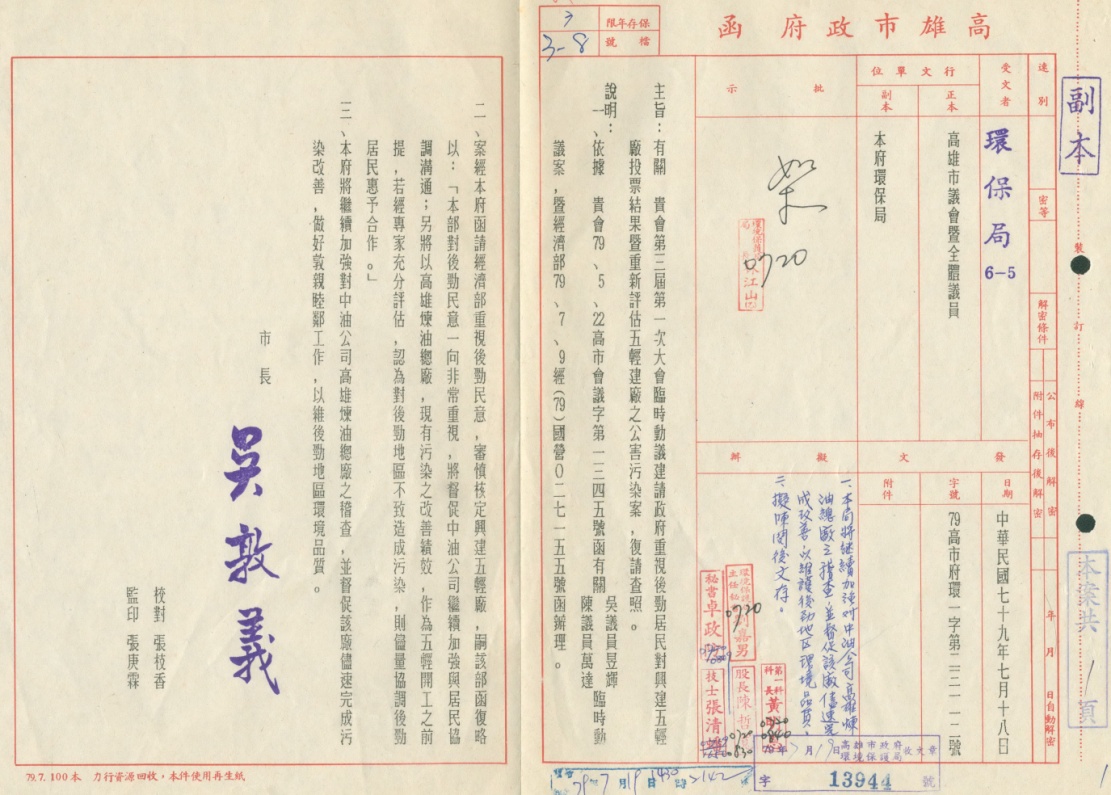 高雄市政府 函
副本
速別
密等
解密條件
公布後解密
附件抽存後解密
年 月 日自動解密
裝
訂
線
受文者
環保局 6-5
行文單位
正本
高雄市議會暨全體議員
副本
本府環保局
批示
如
0720
發文
日期
中華民國七十九年七月十八日
字號
79高市府環一字第二二一一二號
附件
擬辦
一、本局將繼續加強對中油公司高雄煉
油總廠之稽查,並督促該廠儘速完
成改善,以維護後勁地区環境品質。
二、擬陳閱後文存。
保存年限
3
檔號
3-8
主旨:有關 貴會第三屆第一次大會臨時動議建請政府重視後勁居民對興建五輕
廠投票結果暨重新評估五輕建廠之公害污染案,復請查照。
說明:
一、依據 貴會79、5、22高市會議字第一三四五號函有關 吳議員昱輝 陳議員萬達 臨時動
議案,暨經濟部79、7、9經(79)國營0二七一五五號函辦理。
二、案經本府函請經濟部重視後勁民意,審慎核定興建五輕廠,嗣該部函復略
以:「本部對後勁民意一向非常重視,將督促中油公司繼續加強與居民協
調溝通;另將以高雄煉油總廠,現有污染之改善績效,作為五輕開工之前
提,若經專家充分評估,認為對後勁地區不致造成污染,則儘量協調後勁
居民惠予合作。」
三、本府將繼續加強對中油公司高雄煉油總廠之稽查,並督促該廠儘速完成污
染改善,做好敦親睦鄰工作,以維後勁地區環境品質。
市長 吳敦義
校對 張枝香
監印 張庚霖
秘書卓政
0720
技士張清
股長陳哲
0720
0830
第一科科長黃
0720
0840
高雄市政府環境保護局收文章
字 13944 號
本案共1頁
79.7.100本 力行資源回收,本件使用再生紙
1